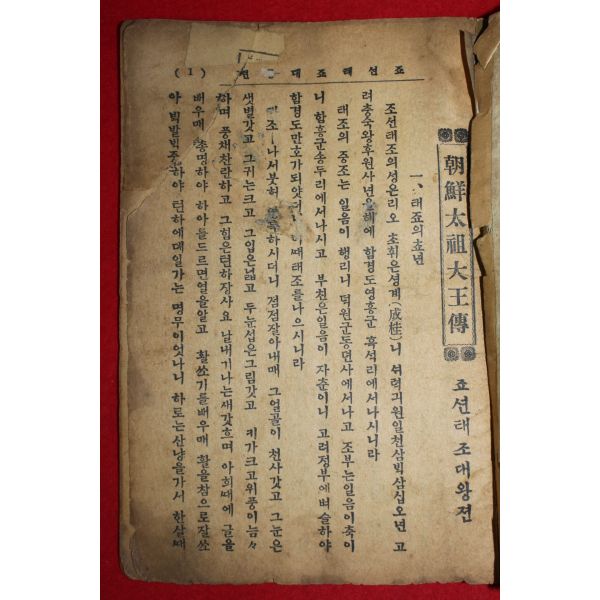 朝鮮太祖大王傳
죠션태조대왕젼
一、태죠의쵸년
조선태조의셩은리오 초휘은셩계(成桂)니 셔력긔원일천삼빅삼십오년 고
려츙숙왕후원사년을해에 함경도영흥군 흑석리에서나시니라
태조의 증조는 일음이 행리니 덕원군동면사에서나고 조부는일음이축이
니 함흥군송두리에서나시고 부친은일음이 자춘이니 고려정부에벼슬하야
함경도만호가되얏더니 이때태조를나으시니라
태조ㅣ나서붓허 하시더니 점점잘아내매 그얼골이 천사갓고 그눈은
샛별갓고 그귀는크고 그입은넓고 두눈섭은그림갓고 키가크고위풍이늠々
하며 풍채찬란하고 그힘은련하장사요 날내기나는새갓흐며 아희때에 글을
배우매 총명하야 하아들드르면열을알고 활쏘기를배우매 활을참으로잘쏘
아 빅발빅중하야 련하에데일가는 명무이엇나니 하로는산냥을가서 한살때
죠션태죠대 젼 (1)